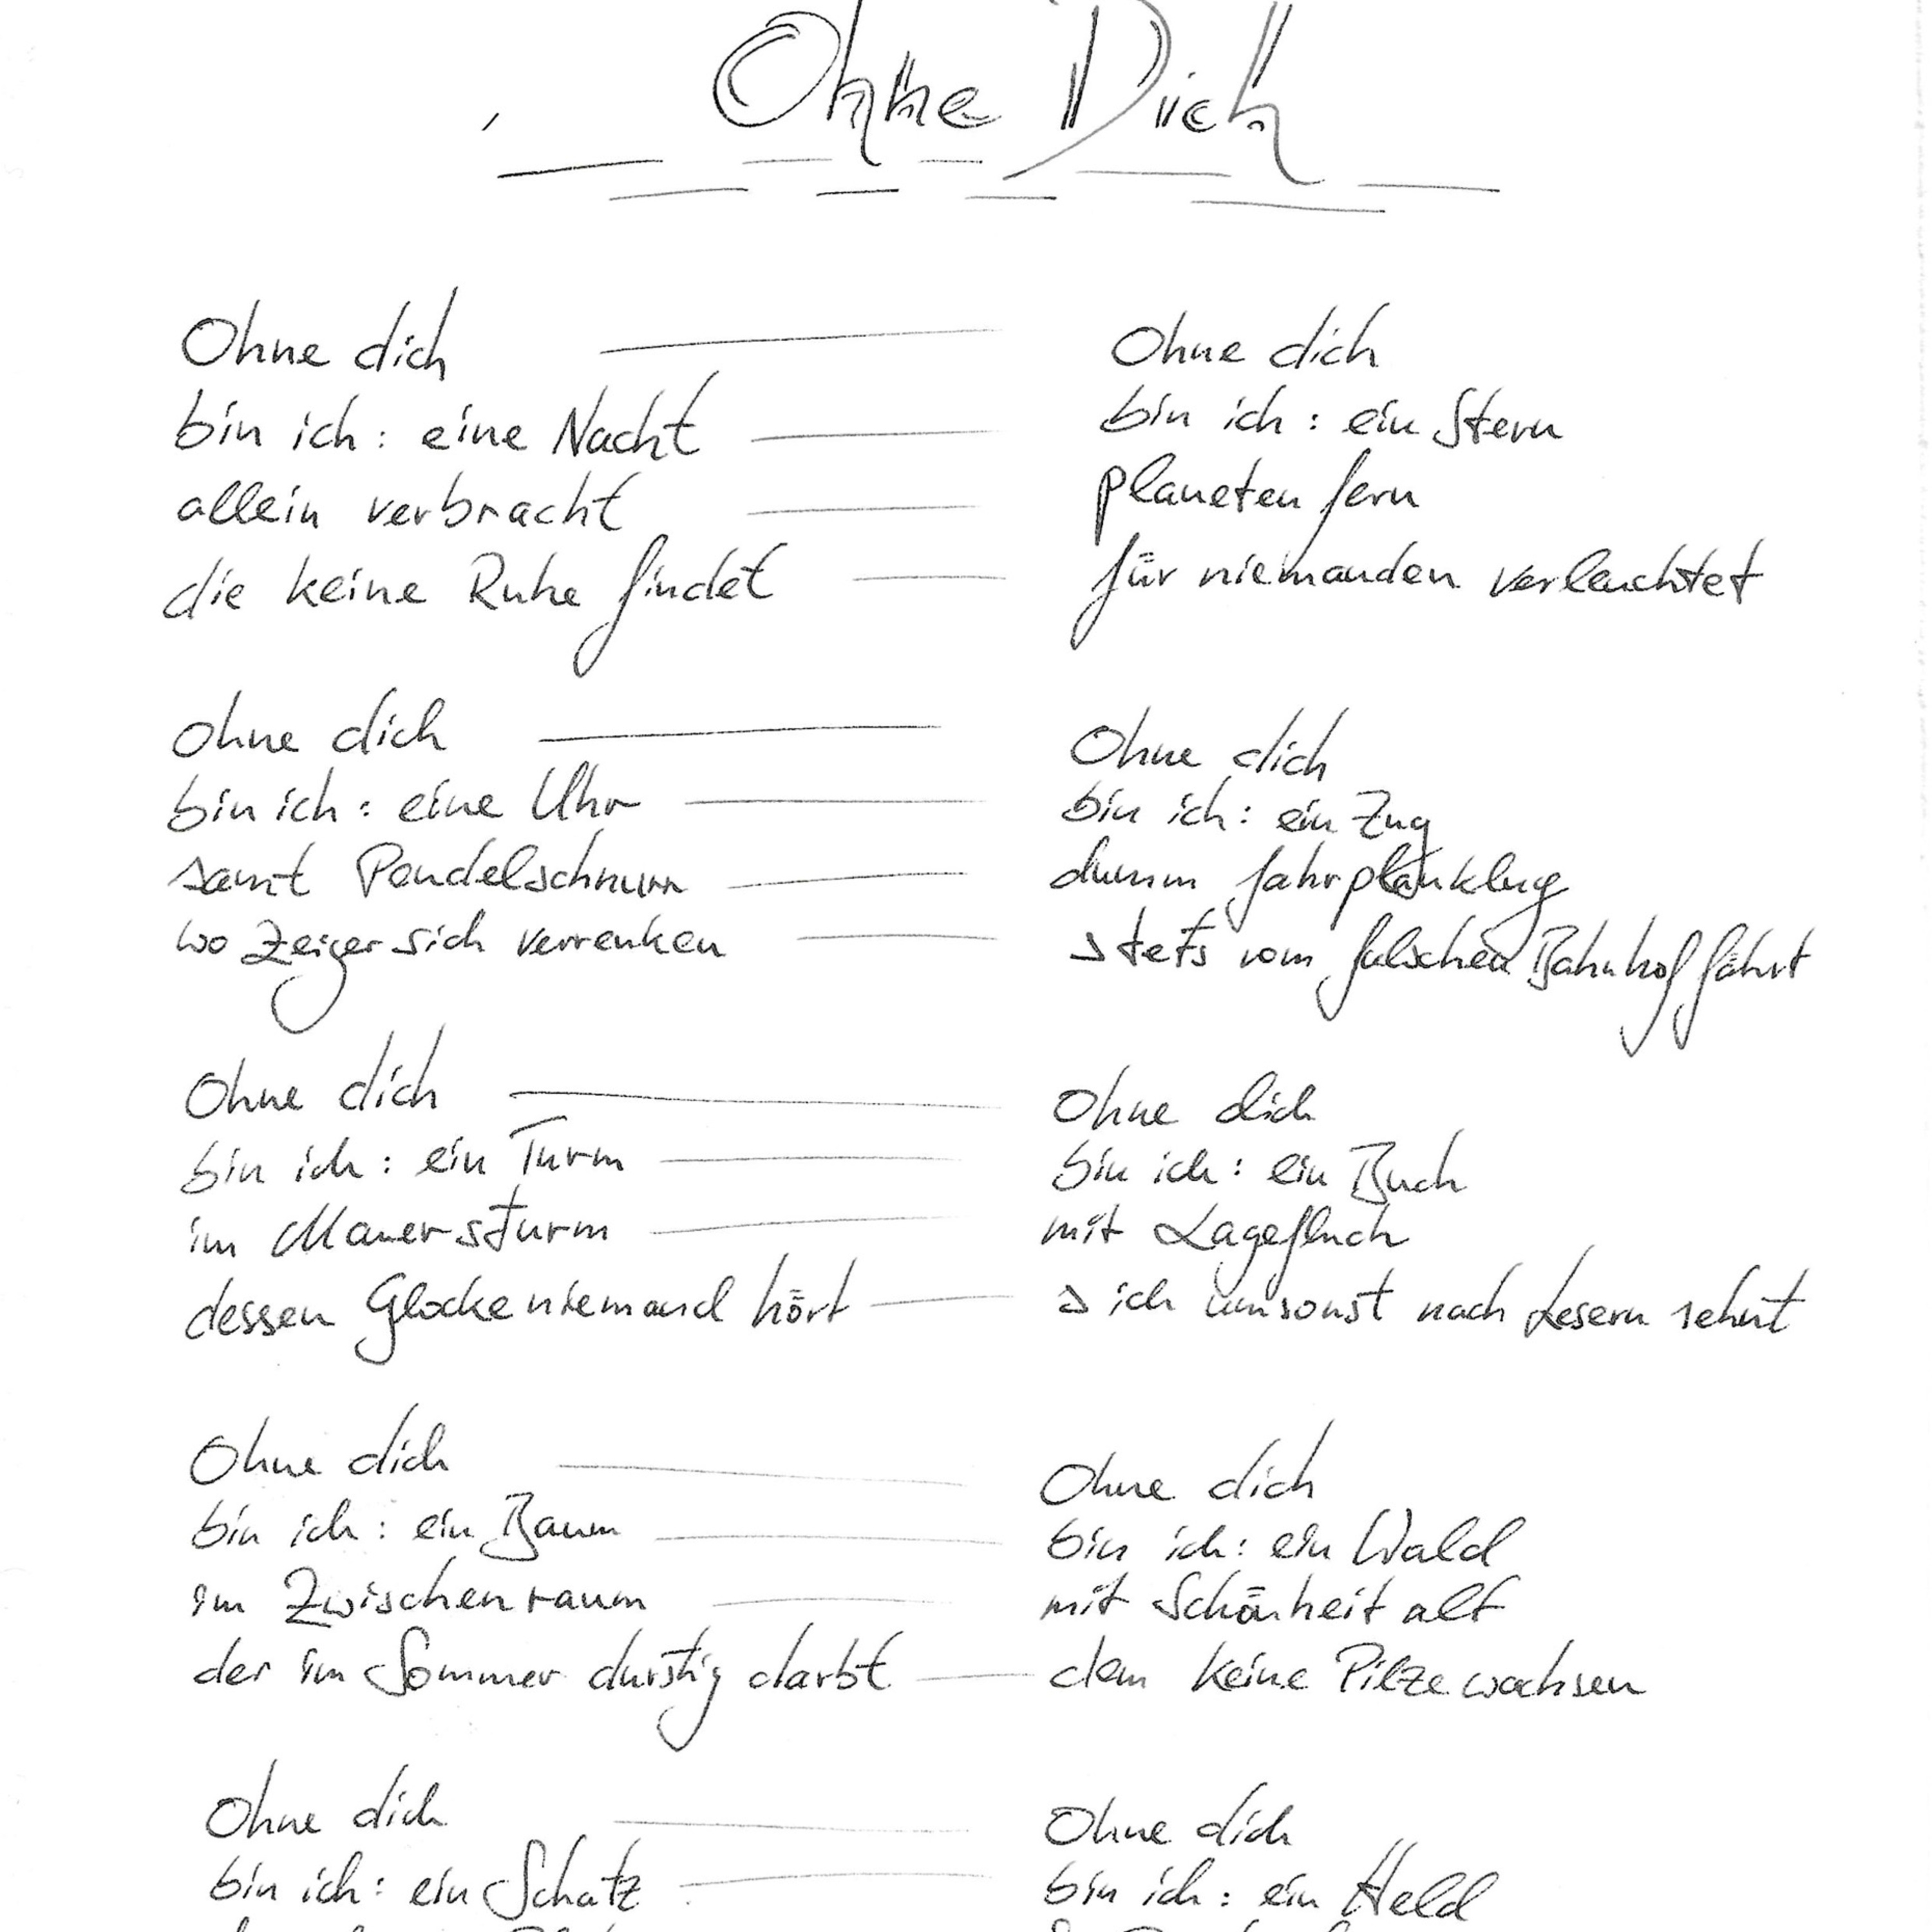 Ohne Dich
Ohne dich
bin ich: eine Nacht
allein verbracht
die keine Ruhe findet
Ohne dich
bin ich: ein Stern
planeten fern
für niemanden verleuchtet
Ohne dich
bin ich: eine Uhr
samt Pendelschnurr
wo Zeiger sich verrenken
Ohne dich
bin ich: ein Zug
dumm fahrplanklug
stets vom falschen Bahnhof fährt
Ohne dich
bin ich: ein Turm
im Mauersturm
dessen Glocke niemand hört
Ohne dich
bin ich: ein Buch
mit Lagefluch
sich umsonst nach Lesern sehnt
Ohne dich
bin ich: ein Baum
im Zwischenraum
der im Sommer durstig darbt
Ohne dich
bin ich: ein Wald
mit Schönheit alt
dem keine Pilze wachsen
Ohne dich
bin ich: ein Schatz
Ohne dich
bin ich: ein Held